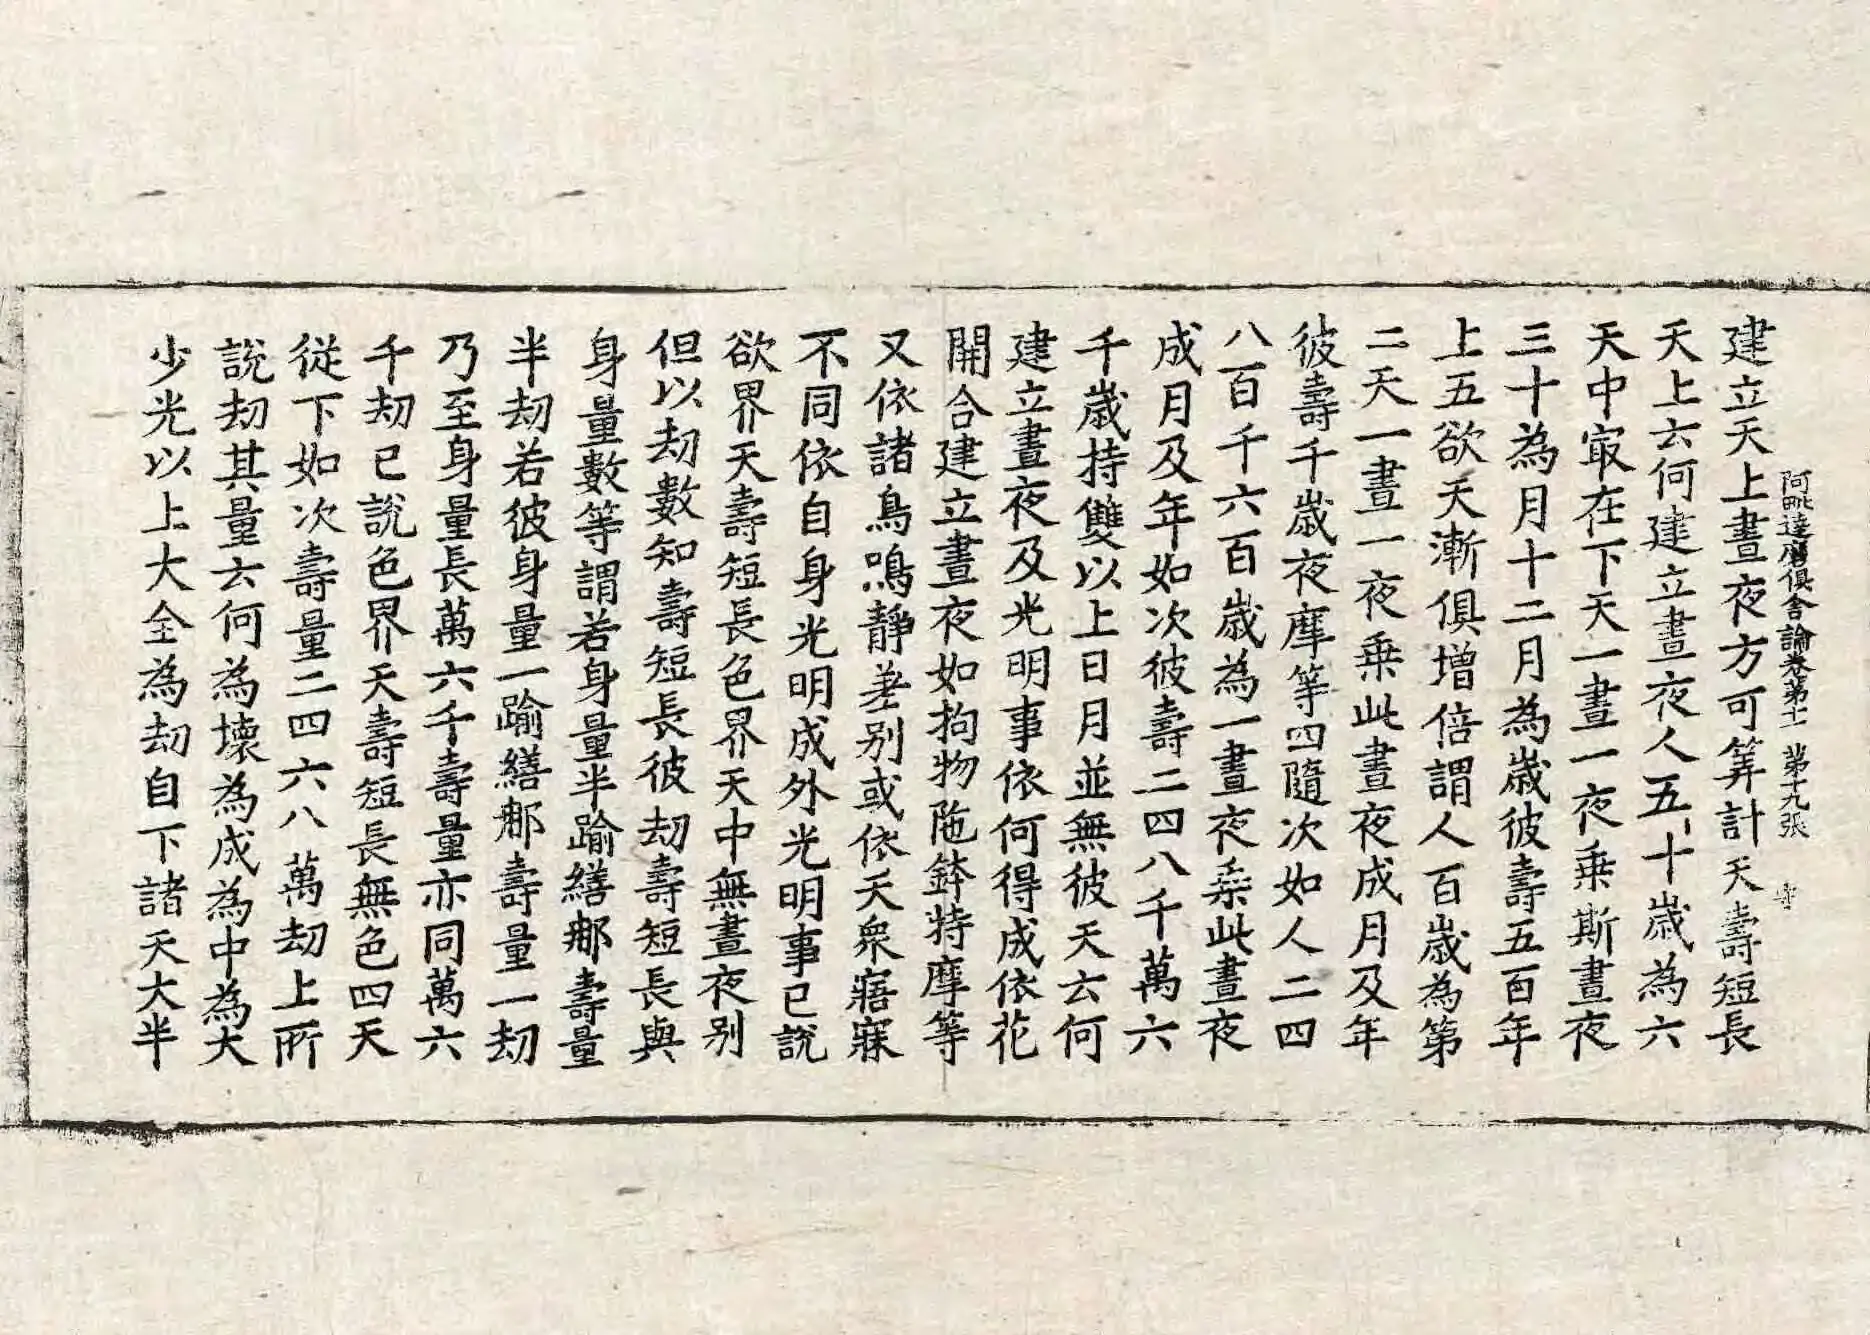 建立天上晝夜方可筭計天壽短長
阿毗達磨俱舍論卷第十一 第十九張 寺
天上云何建立晝夜人五十歲為六
天中㝡在下天一晝一夜乗斯晝夜
三十為月十二月為歲彼壽五百年
上五欲天漸俱增倍謂人百歲為第
二天一晝一夜乗此晝夜成月及年
彼壽千歲夜摩等四隨次如人二四
八百千六百歲為一晝夜乗此晝夜
成月及年如次彼壽二四八千萬六
千歲持雙以上日月並無彼天云何
建立晝夜及光明事依何得成依花
開合建立晝夜如拘物陁鉢特摩等
又依諸鳥鳴靜差别或依天衆寤寐
不同依自身光明成外光明事已說
欲界天壽短長色界天中無晝夜别
但以劫數知壽短長彼劫壽短長與
身量數等謂若身量半踰繕郍壽量
半劫若彼身量一踰繕郍壽量一劫
乃至身量長萬六千壽量亦同萬六
千劫已說色界天壽短長無色四天
從下如次壽量二四六八萬劫上所
說劫其量云何為壞為成為中為大
少光以上大全為劫自下諸天大半